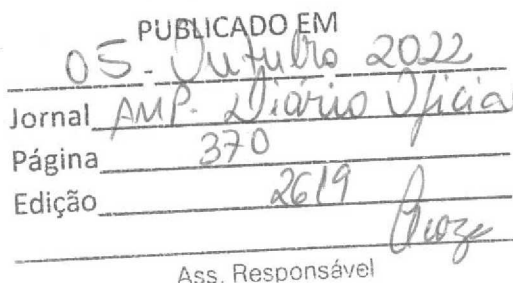 PUBLICADO EM
05 - Outubro 2022
Jornal AMP - Diário Oficial
Página 370
Edição 2619
Ass. Responsável